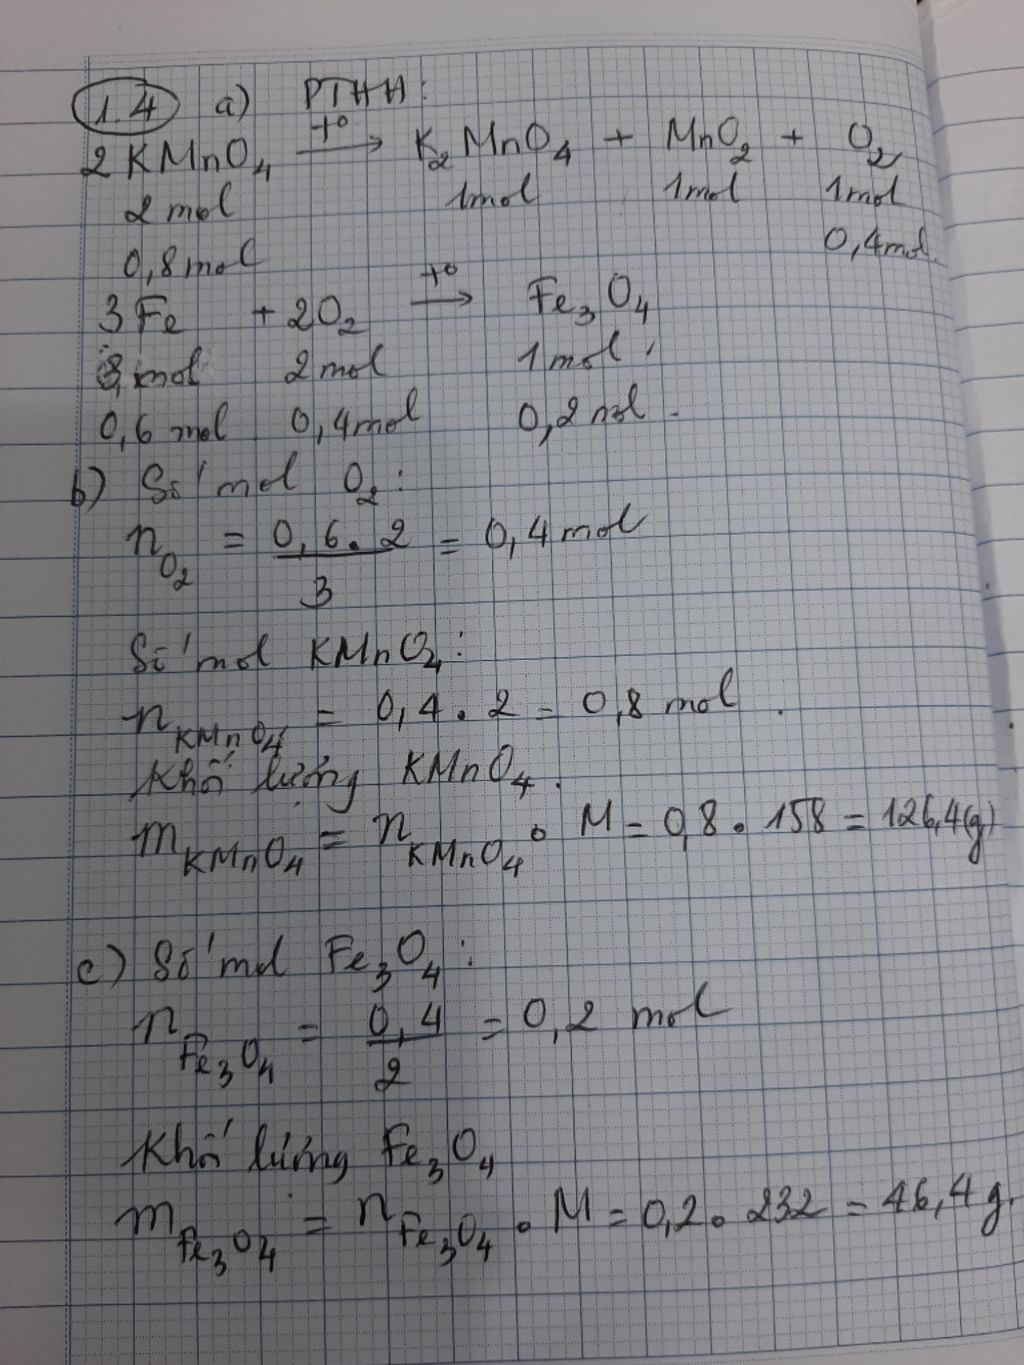 1.4 a) PTHH:
2KMnO₄ —t°→ K₂MnO₄ + MnO₂ + O₂
2mol 1mol 1mol 1mol
0,8mol 0,4mol
3Fe + 2O₂ —t°→ Fe₃O₄
3mol 2mol 1mol
0,6mol 0,4mol 0,2mol
b) Số mol O₂:
n_O₂ = 0,6.2/3 = 0,4mol
Số mol KMnO₄:
n_KMnO₄ = 0,4.2 = 0,8mol.
Khối lượng KMnO₄.
m_KMnO₄ = n_KMnO₄ . M = 0,8.158 = 126,4(g)
c) Số mol Fe₃O₄:
n_Fe₃O₄ = 0,4/2 = 0,2 mol
Khối lượng Fe₃O₄
m_Fe₃O₄ = n_Fe₃O₄ . M = 0,2.232 = 46,4g.